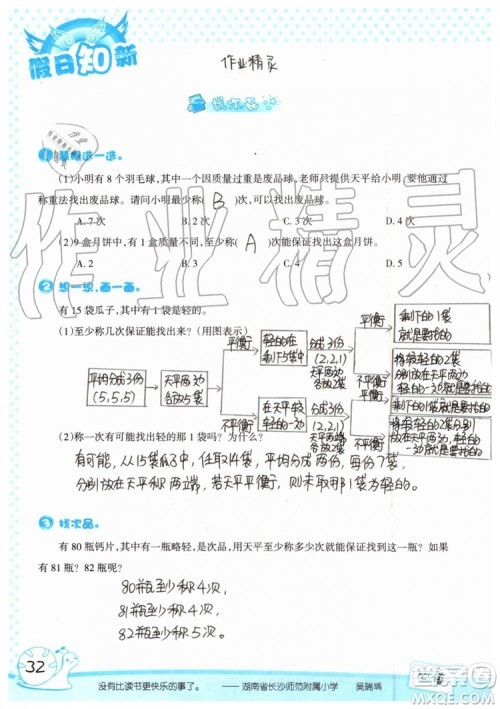 假日知新
作业精灵
找次品
1 慧眼选一选。
(1)小明有 8 个羽毛球，其中一个因质量过重是废品球，老师只提供天平给小明，要他通
过称重法找出废品球。请问小明最少称( B )次，可以找出废品球。
A. 7 次 B. 2 次 C. 3 次 D. 4 次
(2)9 盒月饼中，有 1 盒质量不同，至少称( A )次能保证找出这盒月饼。
A. 2 B. 3 C. 4 D. 5
2 想一想，画一画。
有 15 袋瓜子，其中有 1 袋是轻的。
(1)至少称几次保证能找出来？(用图表示)
平均分成3份
(5,5,5)
天平两边
各放5袋
平衡
轻的在
剩下5袋中
分成3份
(2,2,1)
各放2袋
平衡
剩下的1袋
就是要找的
不平衡
将较轻的2袋
分别放在天平两边
轻的一边就是要找的
不平衡
在天平较
轻的一边
分成3份
(2,2,1)
天平两边
各放2袋
平衡
剩下的1袋
就是要找的
不平衡
将较轻的2袋分别
放在天平两边,轻
的一边就是要找的
(2)称一次有可能找出轻的那 1 袋吗？为什么？
有可能,从15袋瓜子中,任取14袋,平均分成两份,每份7袋,
分别放在天平秤两端,若天平平衡,则未取的那1袋为轻的。
3 找次品。
有 80 瓶钙片，其中有一瓶略轻，是次品，用天平至少称多少次能保证找到这一瓶？如
果有 81 瓶？82 瓶呢？
80瓶至少称4次,
81瓶至少称4次,
82瓶至少称5次。
32
没有比读书更快乐的事了。 ——湖南省长沙师范附属小学 吴瑞瑀
作业精灵